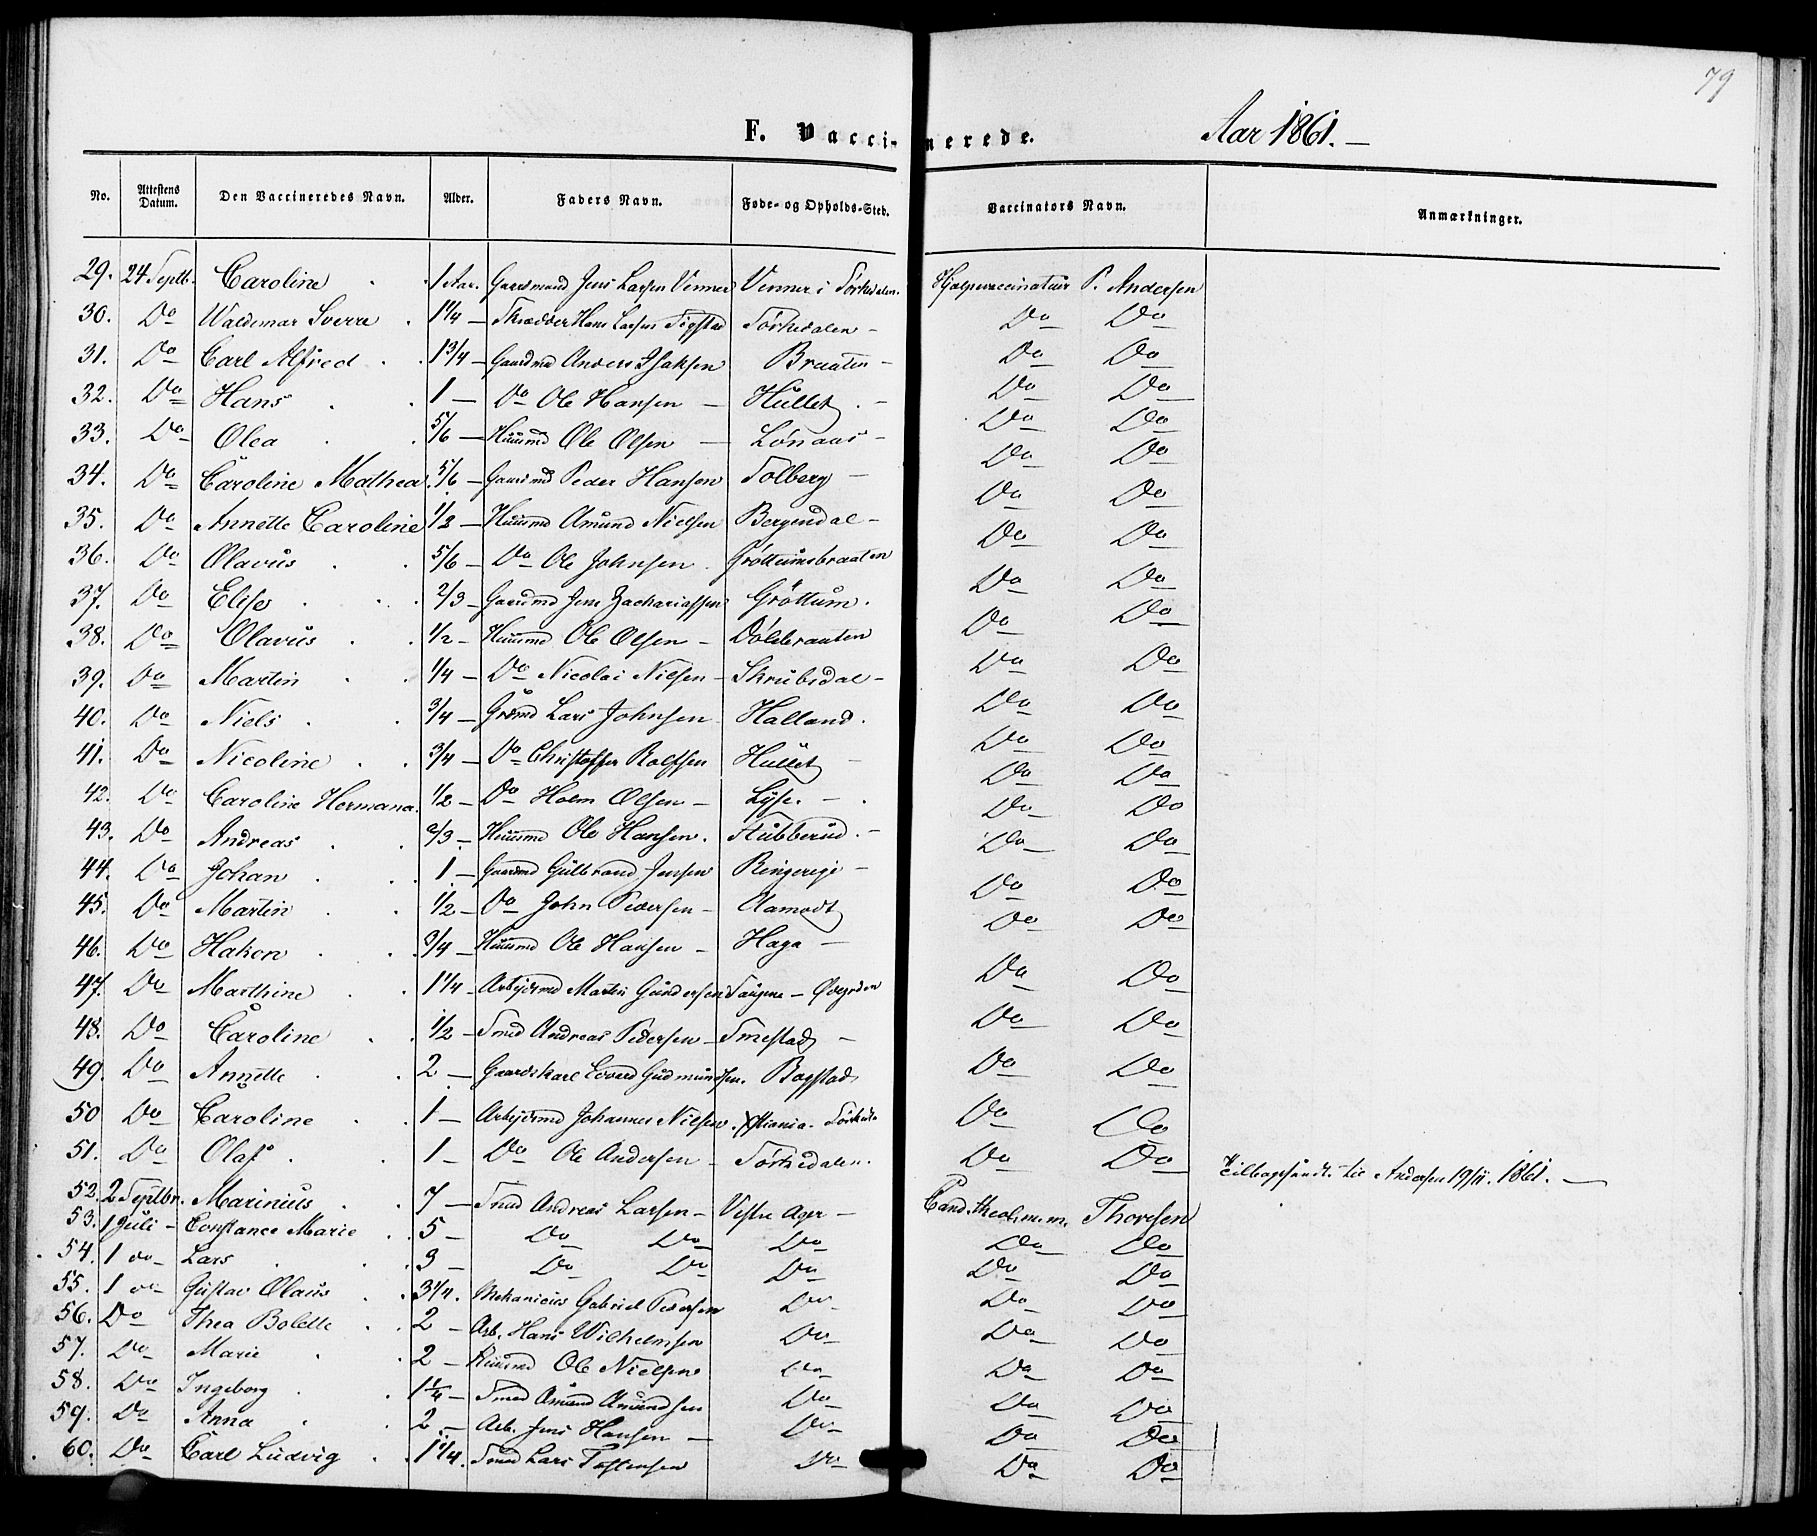 79
F. Vaccinerede. Aar 1861. —
No. Attestens Datum. Den Vaccineredes Navn. Alder. Faders Navn. Føde- og Opholds-Sted. Vaccinators Navn. Anmærkninger.
29. 24 Septb. Caroline 1 Aar. Gaardmand Jens Larsen Venner Venner i Sørkedalen. Hjælpevaccinatør P. Andersen
30. Do Waldemar Sverre 1 1/4 — Skrædder Hans Larsen Sørkedalen — Do Do
31. Do Carl Alfred 1 3/4 — Gaardmd Anders Isaksen Braaten — Do Do
32. Do Hans 1 — Do Ole Hansen — Hullet — Do Do
33. Do Olea 5/6 — Huusmd Ole Olsen — Lønaas — Do Do
34. Do Caroline Mathea 5/6 — Gaardmd Peder Hansen Solberg — Do Do
35. Do Annette Caroline 1/2 — Huusmd Amund Nielsen Bergendal — Do Do
36. Do Olavus 5/6 — Do Ole Johnsen Grøttumsbraaten Do Do
37. Do Elise 2/3 — Gaardmd Jens Zachariassen Grøttum. Do Do
38. Do Olavus 1/2 — Huusmd Ole Olsen — Dølebraaten Do Do
39. Do Martin 1/4 — Do Nicolai Nielsen — Skrubsdal — Do Do
40. Do Niels 3/4 — Grdmd Lars Johnsen Halland. Do Do
41. Do Nicoline 3/4 — Do Christoffer Rolfsen Hullet — Do Do
42. Do Caroline Hermana. 1/2 — Do Holm Olsen — Lyse. — Do Do
43. Do Andreas 2/3 — Huusmd Ole Hansen. Stubberud. — Do Do
44. Do Johan 1 — Gaardmd Gulbrand Jensen Ringerige — Do Do
45. Do Martin 1/2 — Do John Pedersen — Aamodt Do Do
46. Do Hakon 3/4 — Huusmd Ole Hansen — Haga — Do Do
47. Do Marthine 1 1/4 — Arbeidsmd Martin Gundersen Do Do
48. Do Caroline 1/2 — Smed Andreas Pedersen — Smestad — Do Do
49. Do Annette 2 — Gaardskarl Edvard Gudmundsen. Bogstad Do Do
50 Do Caroline 1 — Arbeidsmd Johannes Nielsen. Xstiania. Sørkeda Do Do
51. Do Olaf 1 — Do Ole Andersen — Sørkedalen. Do Do Tilbagesendt til Andersen 19/11. 1861. —
52. 2 Septbr. Marinius 7 — Smed Andreas Larsen — Vestre Ager — Cand. theol. m. m. Thoresen
53. 1 Juli — Constance Marie 5 — Do Do Do Do Do
54. 1 do — Lars 3 — Do Do Do Do Do
55. 1 do — Gustav Olaus 3 1/4. Mekanicus Gabriel Pedersen Do Do Do
56. Do Thea Bolette 2 — Arb. Hans Wilhelmsen Do Do Do
57. Do Marie 2 — Huusmd Ole Nielsen Do Do Do
58. Do Ingeborg 1 1/4 — Smed Amund Amundsen Do Do Do
59. Do Anna 2 — Arb. Jens Hansen — Do Do Do
60. Do Carl Ludvig 1 1/4. Smed Lars Tostensen Do Do Do